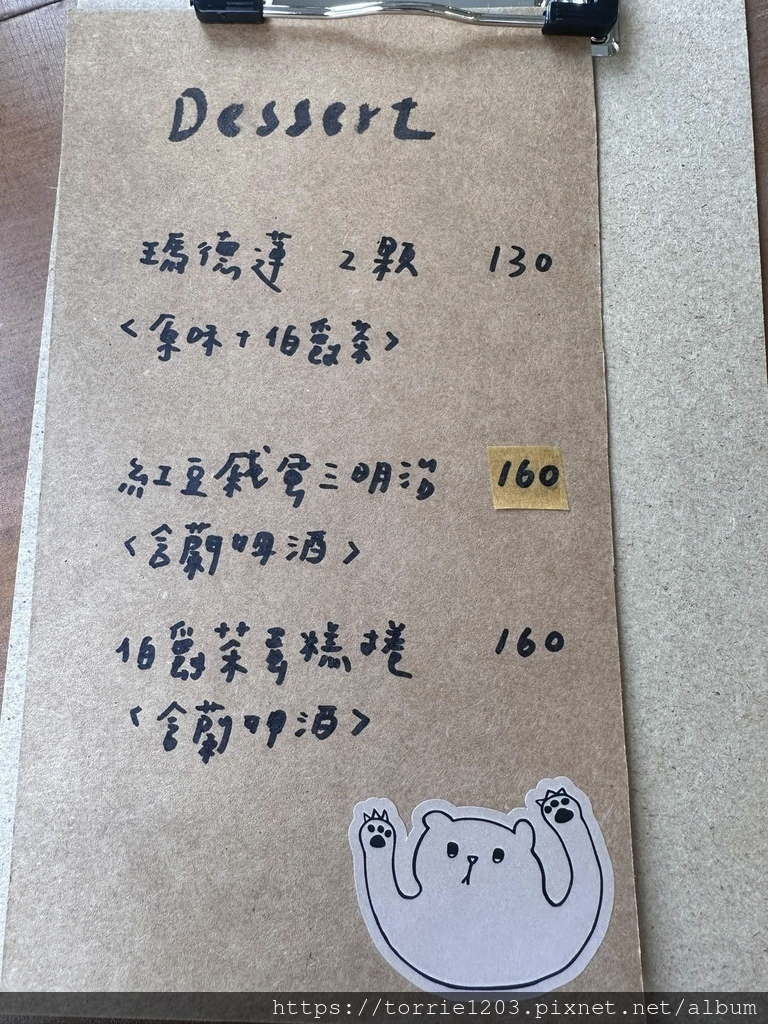 Dessert
瑪德蓮 2顆 130
<原味+伯爵茶>
紅豆銅蛋三明治 160
<含蘭姆酒>
伯爵茶蛋糕捲 160
<含蘭姆酒>
https://torrie1203.pixnet.net/album